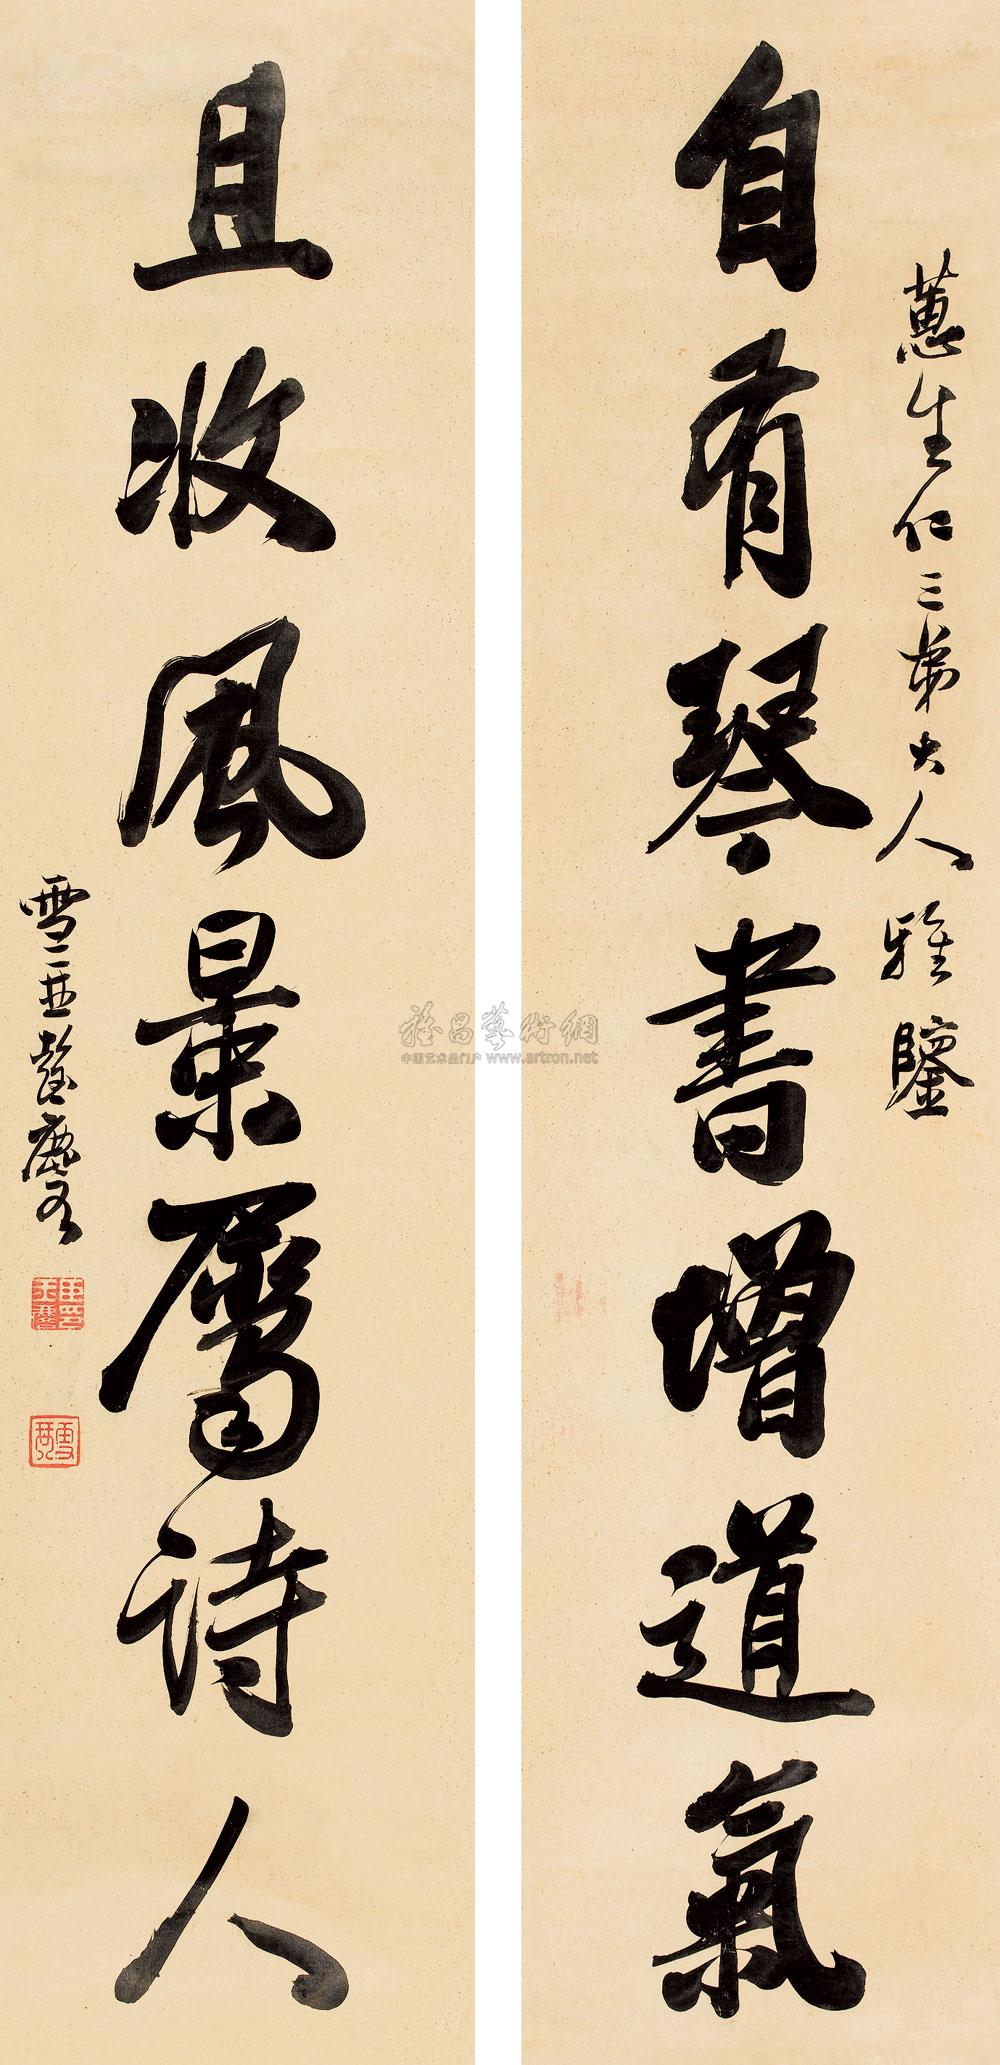 蕙生仁三弟大人雅鑒
自有琴書增道氣
且收風景屬詩人
雪
雅昌藝術網
中国艺术品门户 www.artron.net